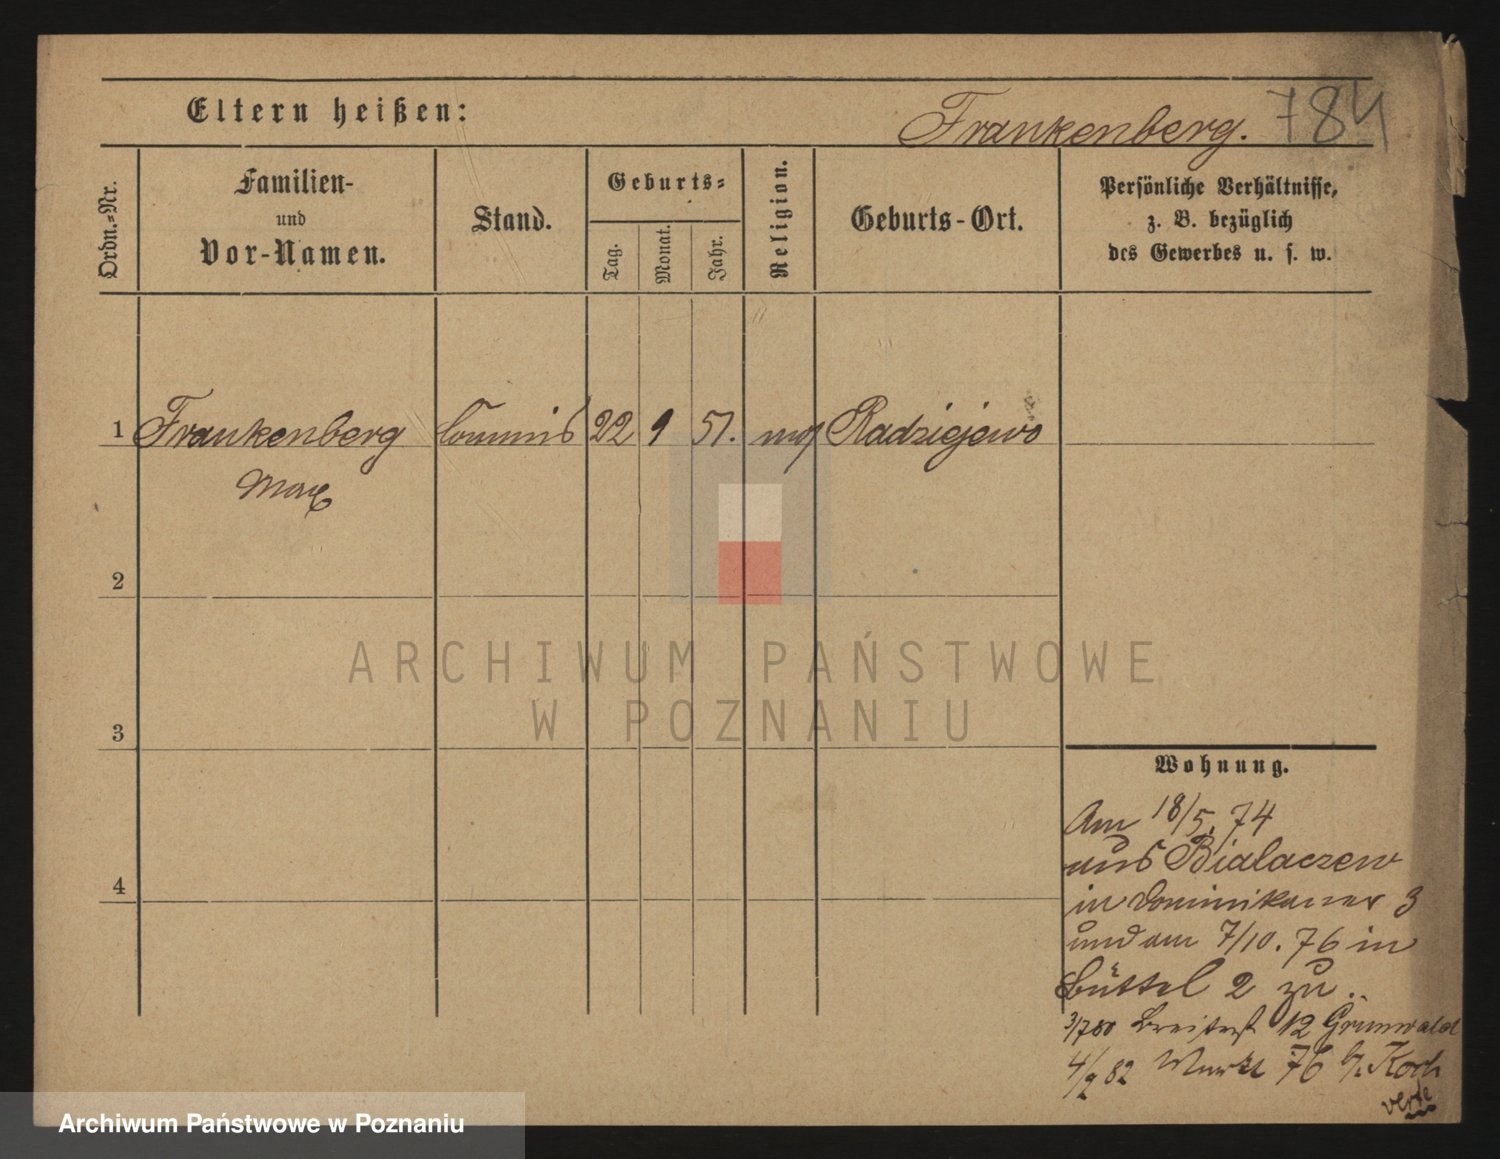 Eltern heißen:
Frankenberg. 784
Ordn.-Nr.
Familien-
und
Vor-Namen.
Stand.
Geburts-
Tag.
Monat.
Jahr.
Religion.
Geburts-Ort.
Persönliche Verhältnisse,
z. B. bezüglich
des Gewerbes u. s. w.
1 Frankenberg Commis 22 9 51. mos Radziejewo
Max
2
3
4
Wohnung.
Am 18/5. 74
aus Bialaczew
in Dominikaner 3
und am 7/10. 76 in
Büttel 2 zu.
3/7 80 Breitestr 12 Grunwald
4/2 82 Markt 76 b/. Koch
verte
ARCHIWUM PAŃSTWOWE
W POZNANIU
Archiwum Państwowe w Poznaniu